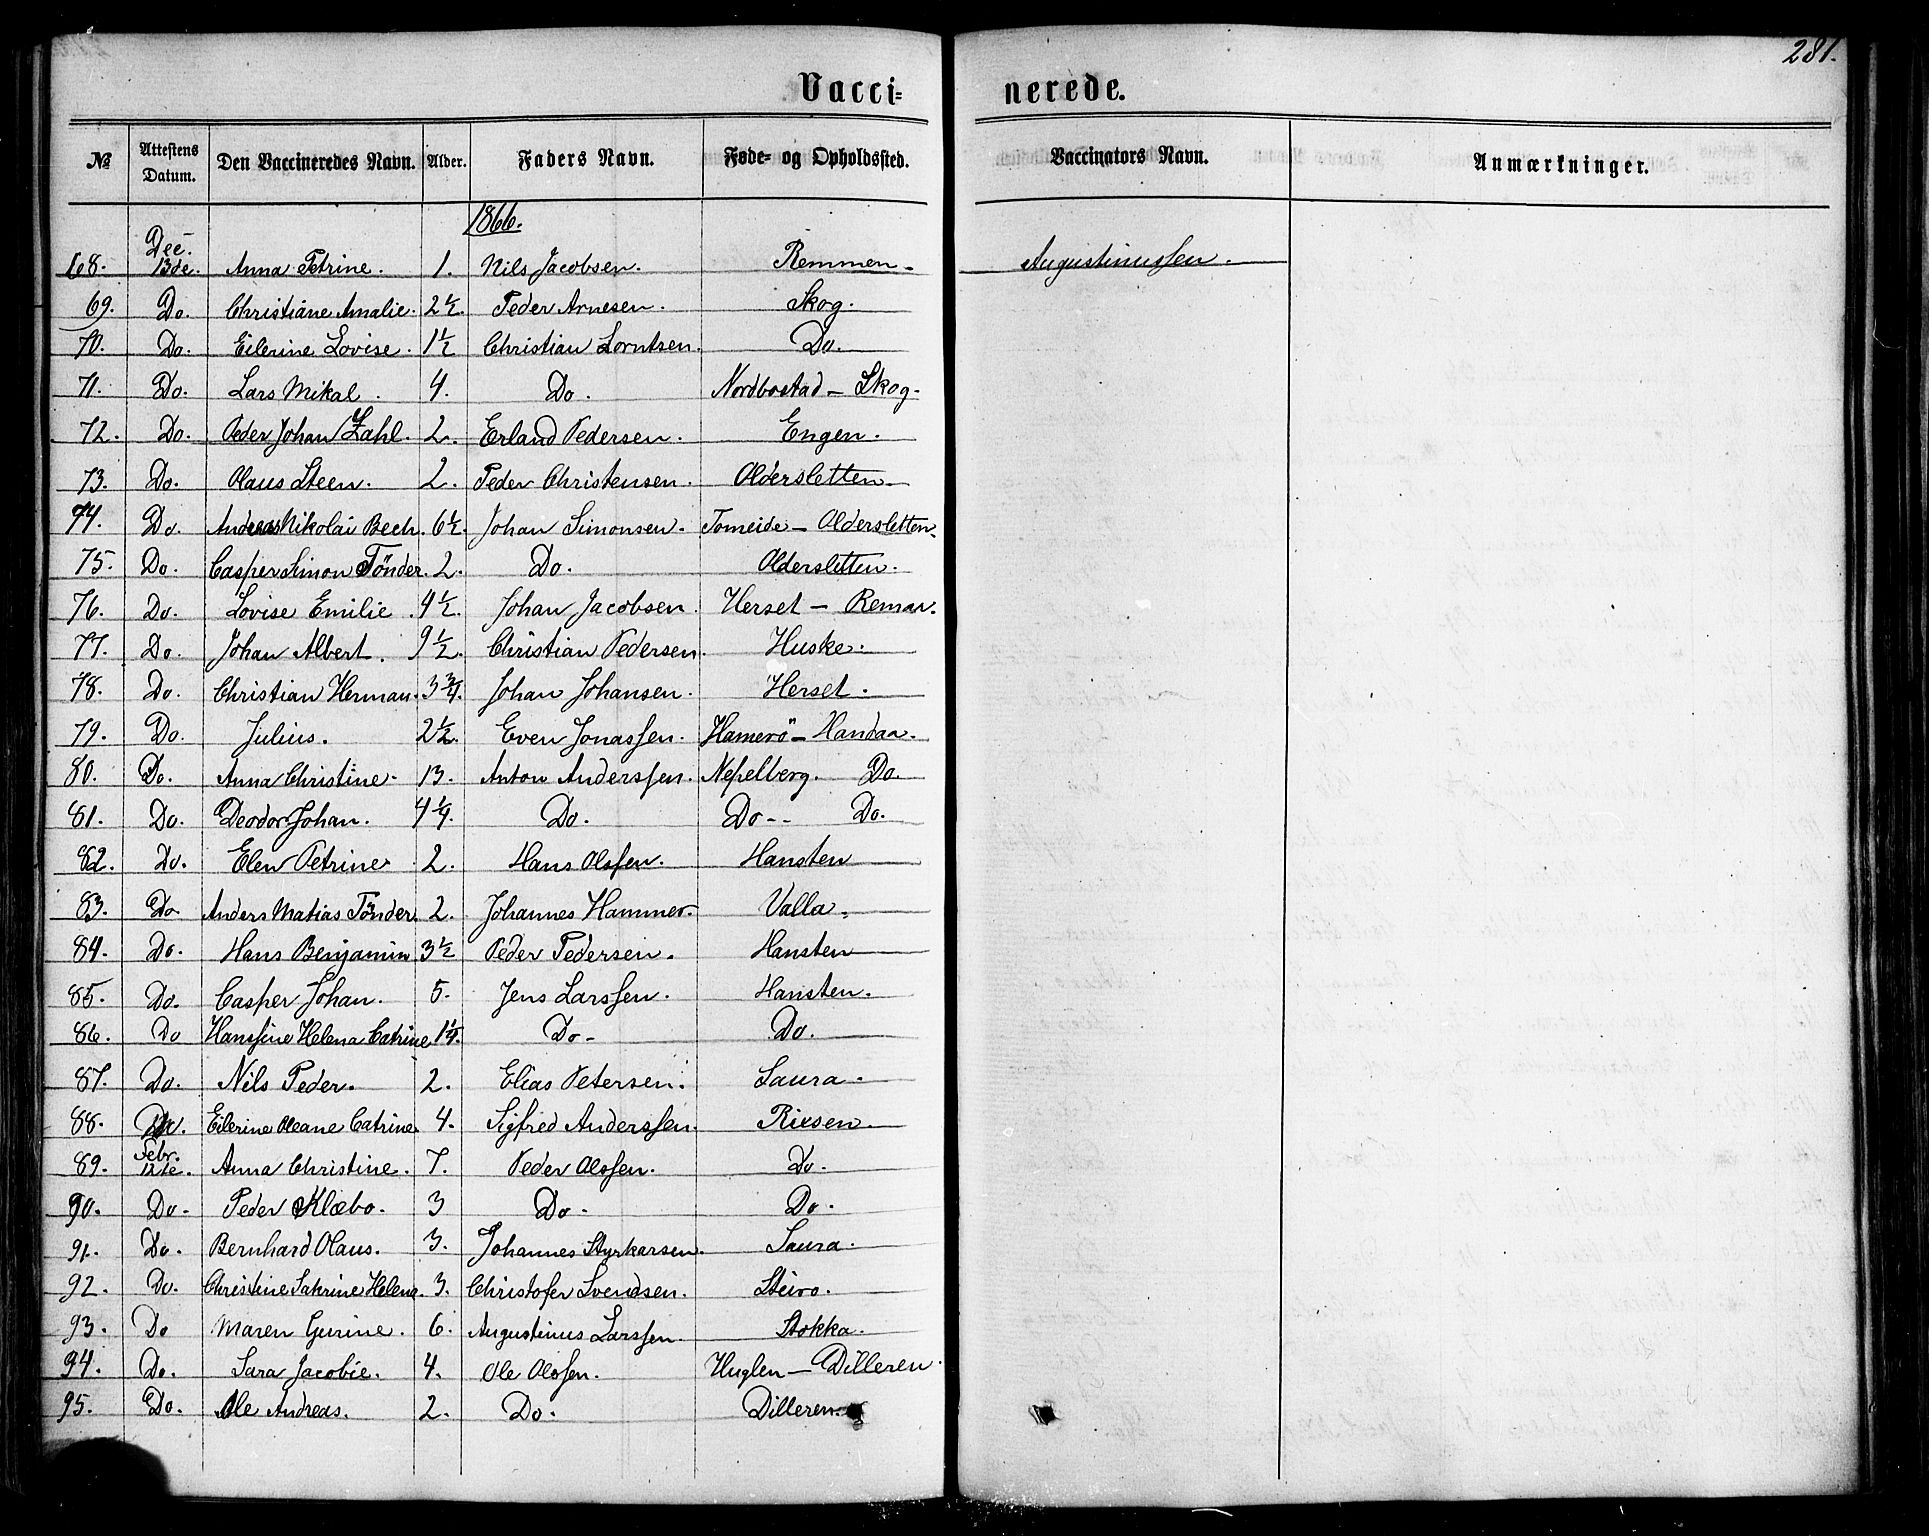 281.
Vacci= nerede.
№ Attestens Datum. Den Vaccineredes Navn. Alder. Faders Navn. Føde- og Opholdssted. Vaccinators Navn. Anmærkninger.
1866.
68. Dec. 13de. Anna Petrine. 1. Nils Jacobsen. Remmen. Augustinussen.
69. Do. Christiane Amalie. 2 1/2. Peder Arnesen. Skog.
70. Do. Eilerine Lovise. 1 1/2 Christian Lorntsen. Do.
71. Do. Lars Mikal. 4. Do. Nordbostad - Skog.
72. Do. Peder Johan Zahl. 2. Erland Pedersen. Engen.
73. Do. Olaus Steen. 2. Peder Christensen. Oldersletten.
74. Do. Andreas Nikolai Bech. 6 1/2. Johan Simonsen. Tomeide - Oldersletten.
75. Do. Casper Simon Tönder. 2. Do. Oldersletten.
76. Do. Lovise Emilie. 4 1/2. Johan Jacobsen. Herset - Remar.
77. Do. Johan Albert. 9 1/2. Christian Pedersen. Huske.
78. Do. Christian Herman. 3 3/4. Johan Johansen. Herset.
79. Do. Julius. 2 1/2. Even Jonassen. Hamerö - Handaa.
80. Do. Anna Christine. 13. Anton Anderssen. Nepelberg. Do.
81. Do. Deodor Johan. 4 1/4. Do. Do-- Do.
82. Do. Elen Petrine 2. Hans Olssen. Hansten
83. Do Anders Matias Tönder. 2. Johannes Hammer. Valla.
84. Do. Hans Benjamin 3 1/2 Peder Pedersen. Hansten
85. Do. Casper Johan. 5. Jens Larssen. Hansten.
86. Do Hanssine Helena Catrine 1 1/4. Do- Do.
87. Do. Nils Peder. 2. Elias Petersen. Saura.
88. Do. Eilerine Oleane Catrine. 4. Sigfred Anderssen. Riesen.
89. Febr. 12te. Anna Christine. 7. Peder Olssen. Do.
90. Do- Peder Klæbo. 3 Do- Do.
91. Do. Bernhard Olaus. 3. Johannes Styrkarsen. Saura.
92. Do. Christine Katrine Helena. 3. Christofer Svendsen. Steiro.
93. Do Maren Gurine. 6. Augustinus Larssen. Stokka.
94. Do. Sara Jacobie. 4. Ole Olssen. Huglen - Dilleren.
95. Do. Ole Andreas. 2. Do. Dilleren.